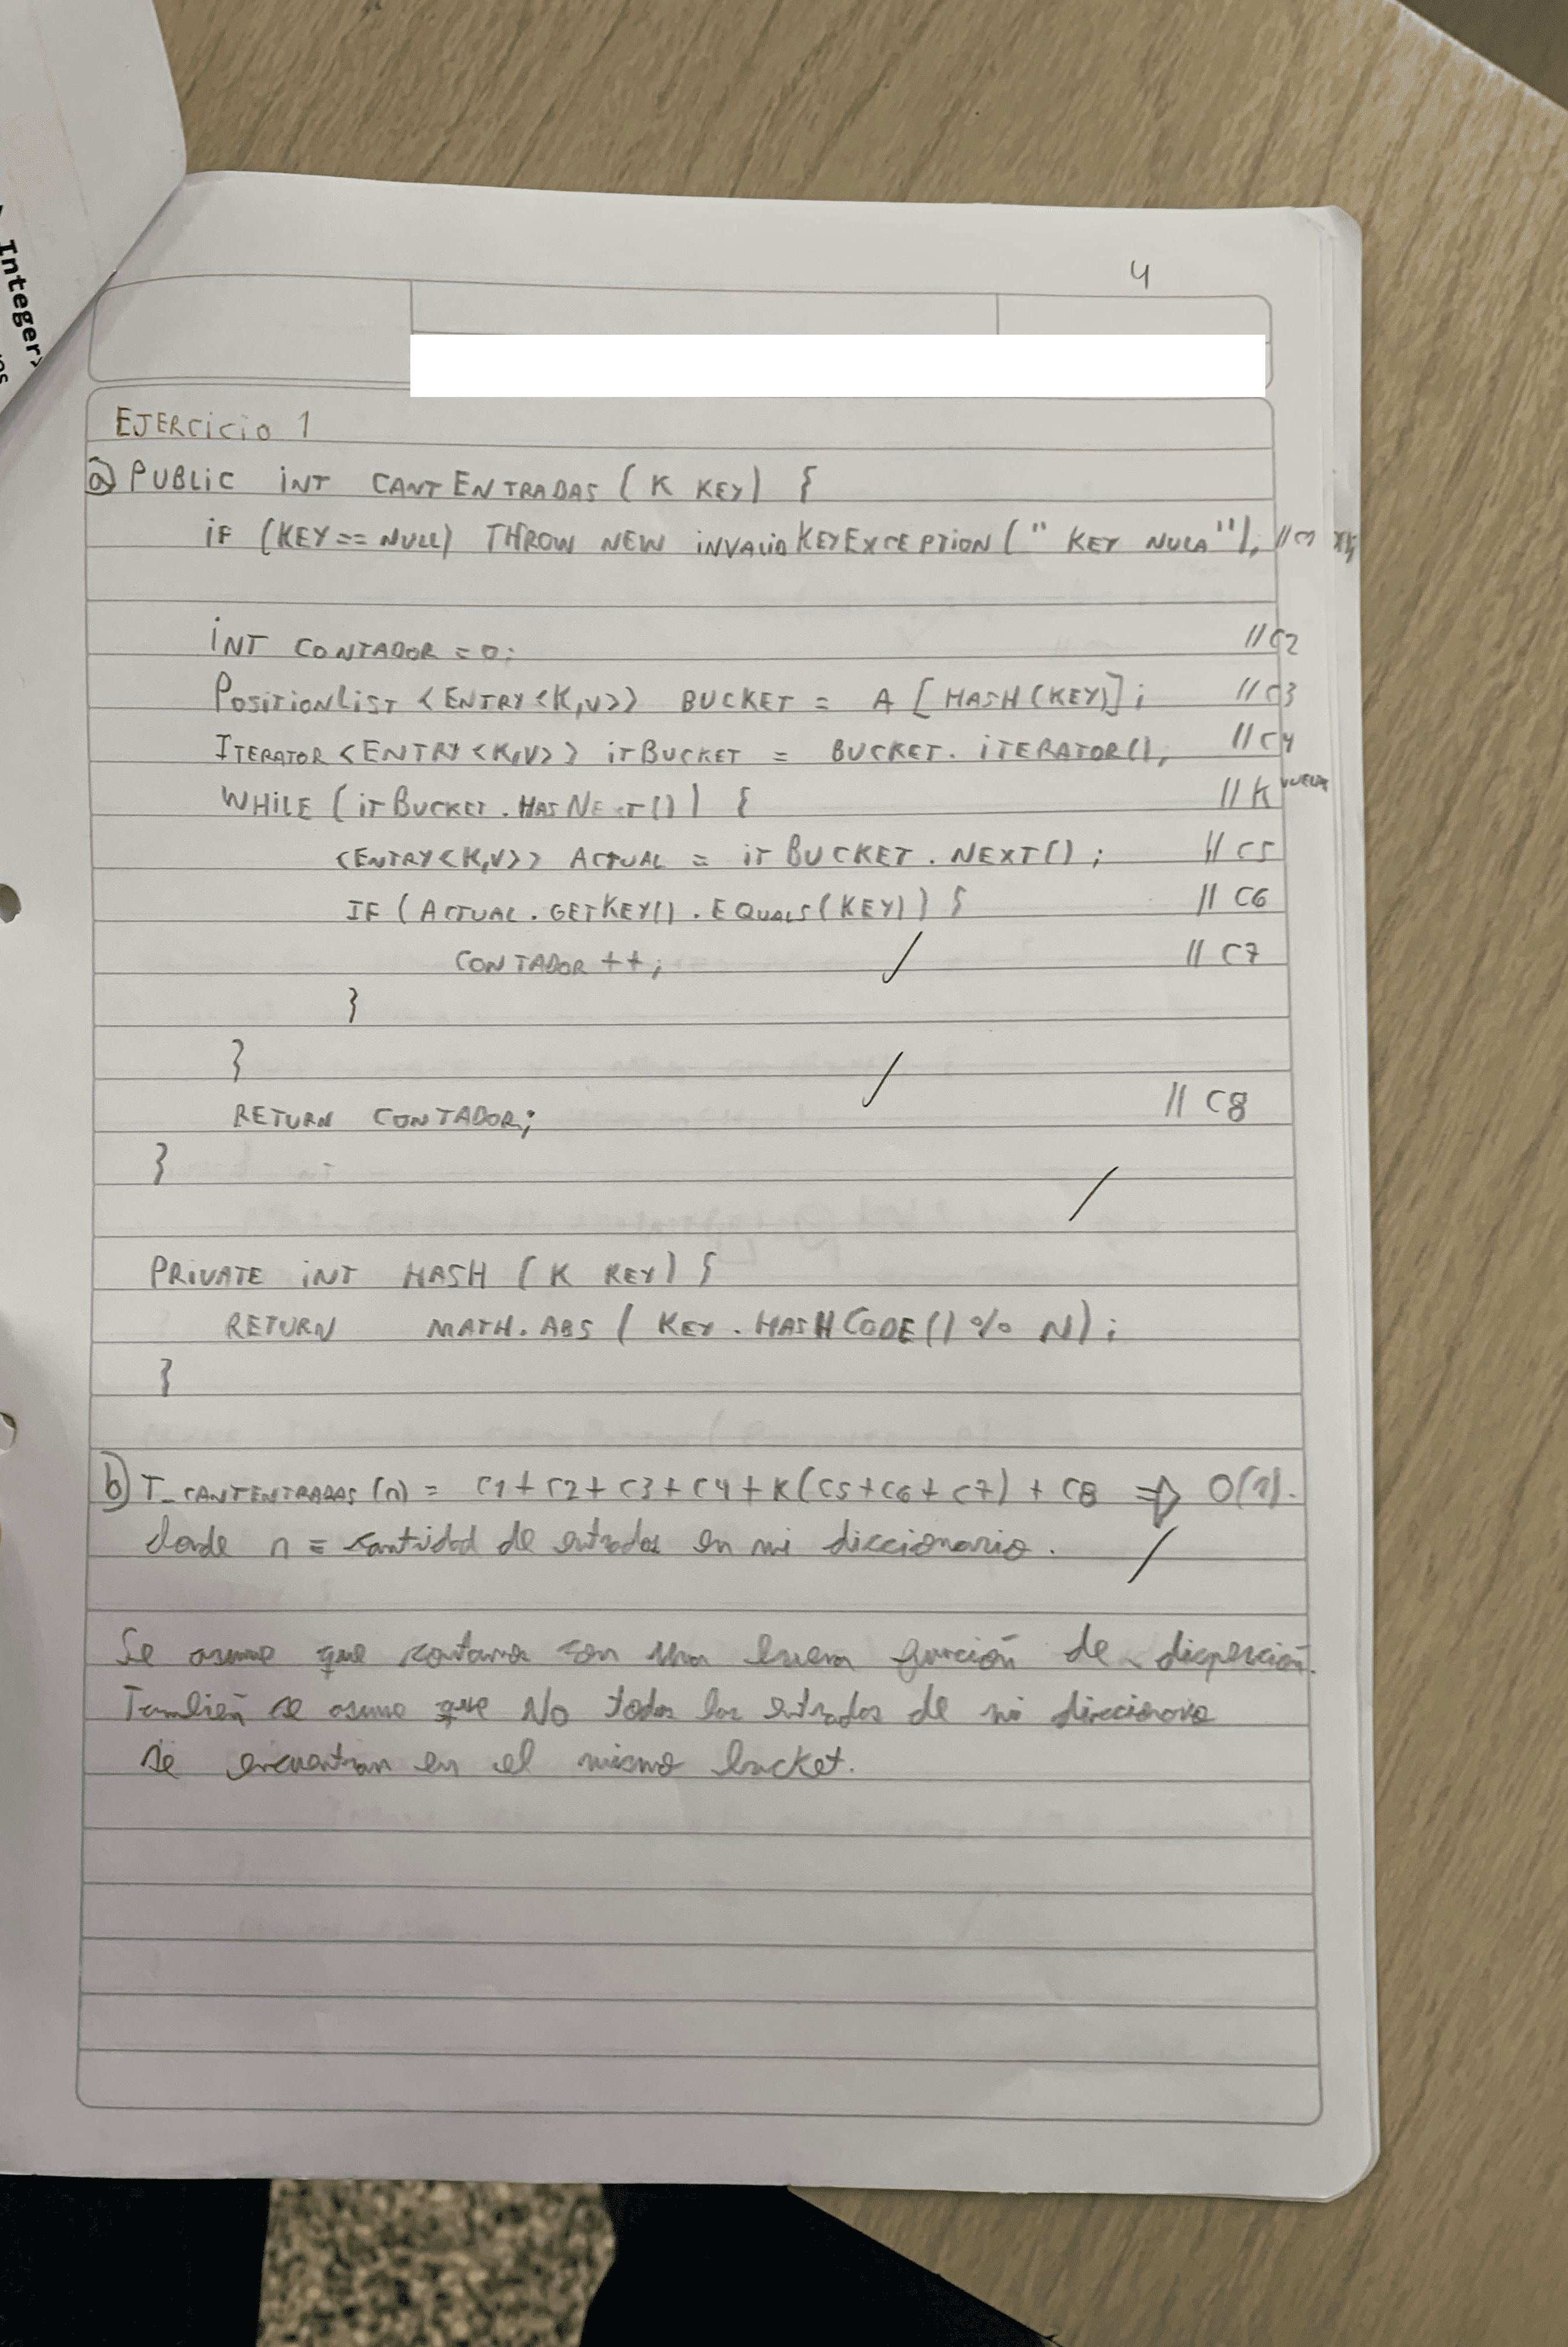 Integer>
4
EJERCICIO 1
a) PUBLIC INT CANTENTRADAS (K KEY) {
IF (KEY == NULL) THROW NEW INVALIDKEYEXCEPTION (" KEY NULA"); //C1
INT CONTADOR = 0; //C2
POSITIONLIST <ENTRY <K,V>> BUCKET = A [HASH(KEY)]; //C3
ITERATOR <ENTRY <K,V>> ITBUCKET = BUCKET. ITERATOR(); //C4
WHILE (ITBUCKET. HASNEXT()) { //K
<ENTRY<K,V>> ACTUAL = ITBUCKET. NEXT(); //C5
IF (ACTUAL. GETKEY(). EQUALS(KEY)) { //C6
CONTADOR ++; //C7
}
}
RETURN CONTADOR; //C8
}
PRIVATE INT HASH (K KEY) {
RETURN MATH.ABS ( KEY. HASHCODE() % N);
}
b) T_CANTENTRADAS (n) = C1 + C2 + C3 + C4 + K(C5 + C6 + C7) + C8 ⇒ O(1).
donde n = cantidad de entradas en mi diccionario.
Se asume que contamos con una buena función de dispersión.
También se asume que NO todas las entradas de mi diccionario
se encuentran en el mismo bucket.